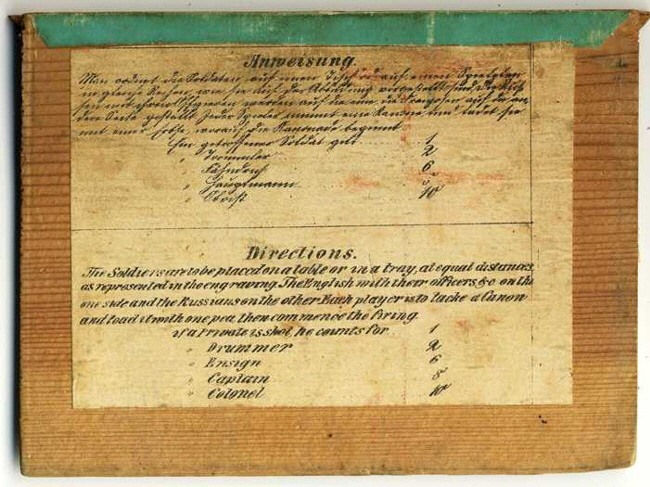 Anweisung.
Man ordnet die Soldaten auf einem Tisch od auf einem
in gleiche Reihen, wie sie auf der Abbildung vorgestellt sind. Die Rus-
sen mit ihren werden auf die eine, die Franzosen auf die an-
dere Seite gestellt. Jeder Spieler nimmt eine Kanone und ladet sie
mit einer Erbse, worauf die Kanonade beginnt.
Ein getroffener Soldat gilt 1
" Trommler 2
" Fähndrich 6
" Hauptmann 8
" Obrist 10
Directions.
The Soldiers are to be placed on a table or in a tray, at equal distances,
as represented in the engraving. The English with their officers, &c. on the
one side and the Russians on the other. Each player is to tacke a Canon
and load it with one pea, then commence the firing.
if a Private is shot, he counts for 1
" Drummer 2
" Ensign 6
" Captain 8
" Colonel 10